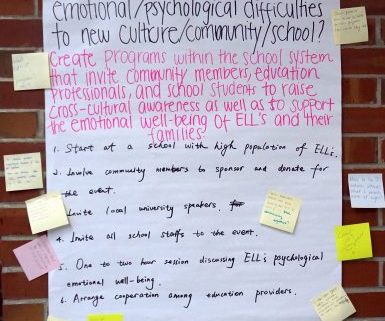 emotional/psychological difficulties
to new culture/community/school?
Create Programs within the school system
that invite community members, education
Professionals, and school students to raise
cross-cultural awareness as well as to support
the emotional well-being of ELL's and their
families.
1. Start at a school with high population of ELL's.
2. Involve community members to sponsor and donate for
the event.
Invite local university speakers.
4. Invite all school staffs to the event.
5. One to two hour session discussing ELL's psychological
emotional well-being.
6. Arrange cooperation among education providers.